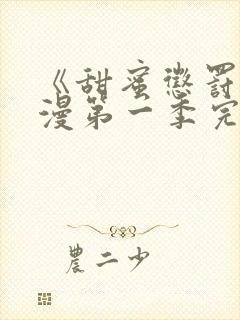 《甜蜜懲罰
漫第一季完
農二少